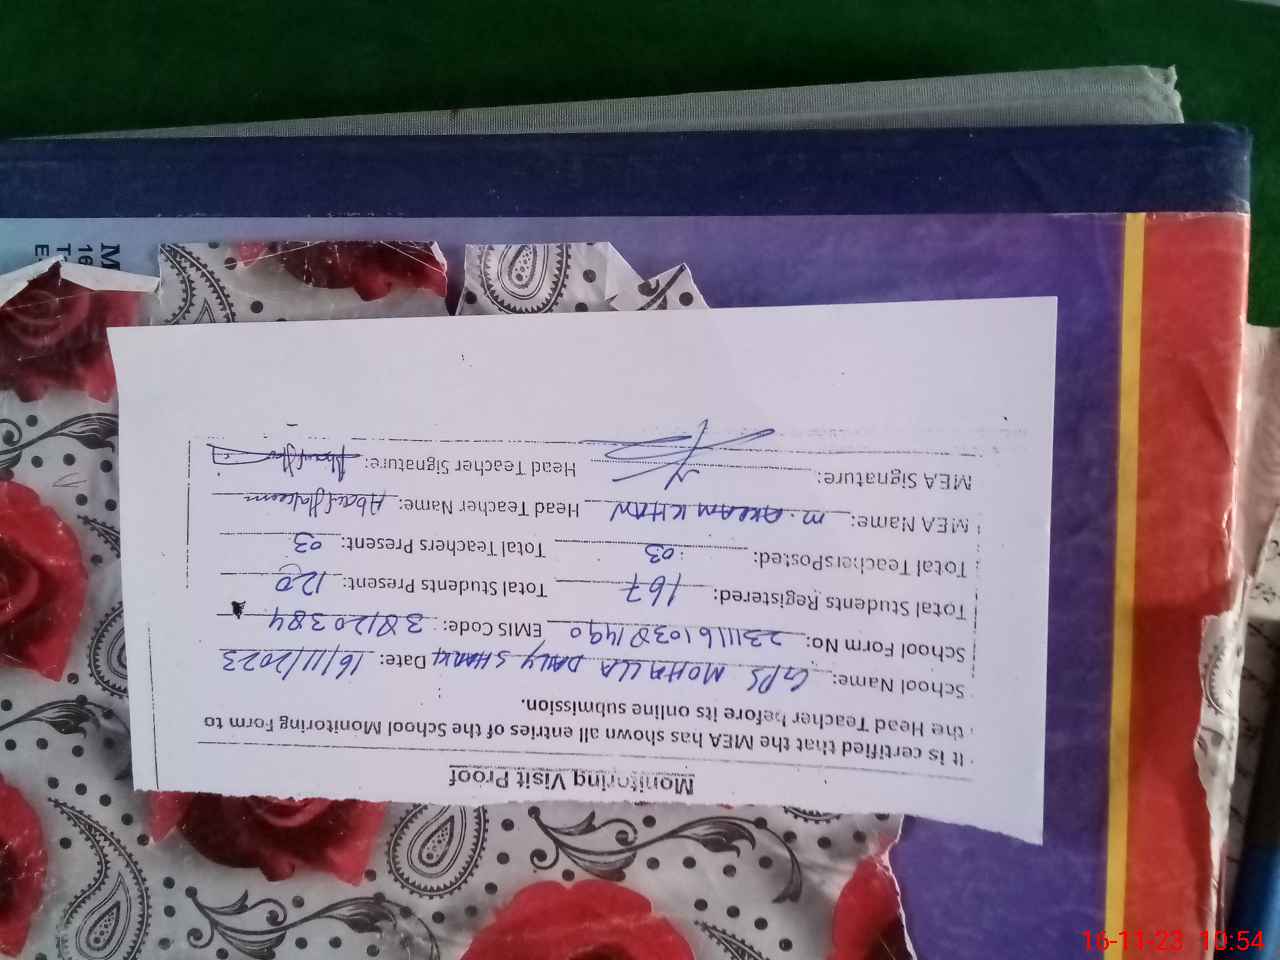 Monitoring Visit Proof
It is certified that the MEA has shown all entries of the School Monitoring Form to
the Head Teacher before its online submission.
School Name: GPS MOHALLA DAILY SHARKI Date: 16/11/2023
School Form No: 23111610381490 EMIS Code: 38120384
Total Students Registered: 167 Total Students Present: 120
Total Teachers Posted: 03 Total Teachers Present: 03
MEA Name: M. AKRAM KHAN Head Teacher Name:
MEA Signature: Head Teacher Signature:
16-11-23 10:54